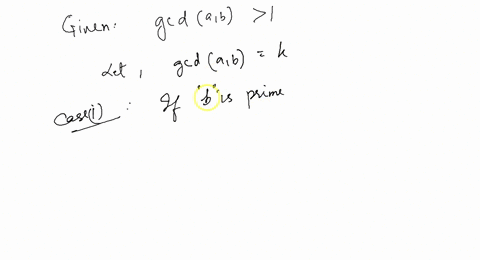 Given: gcd (a,b) > 1
Let, gcd (a,b) = k
Case(i): If "b" is prime